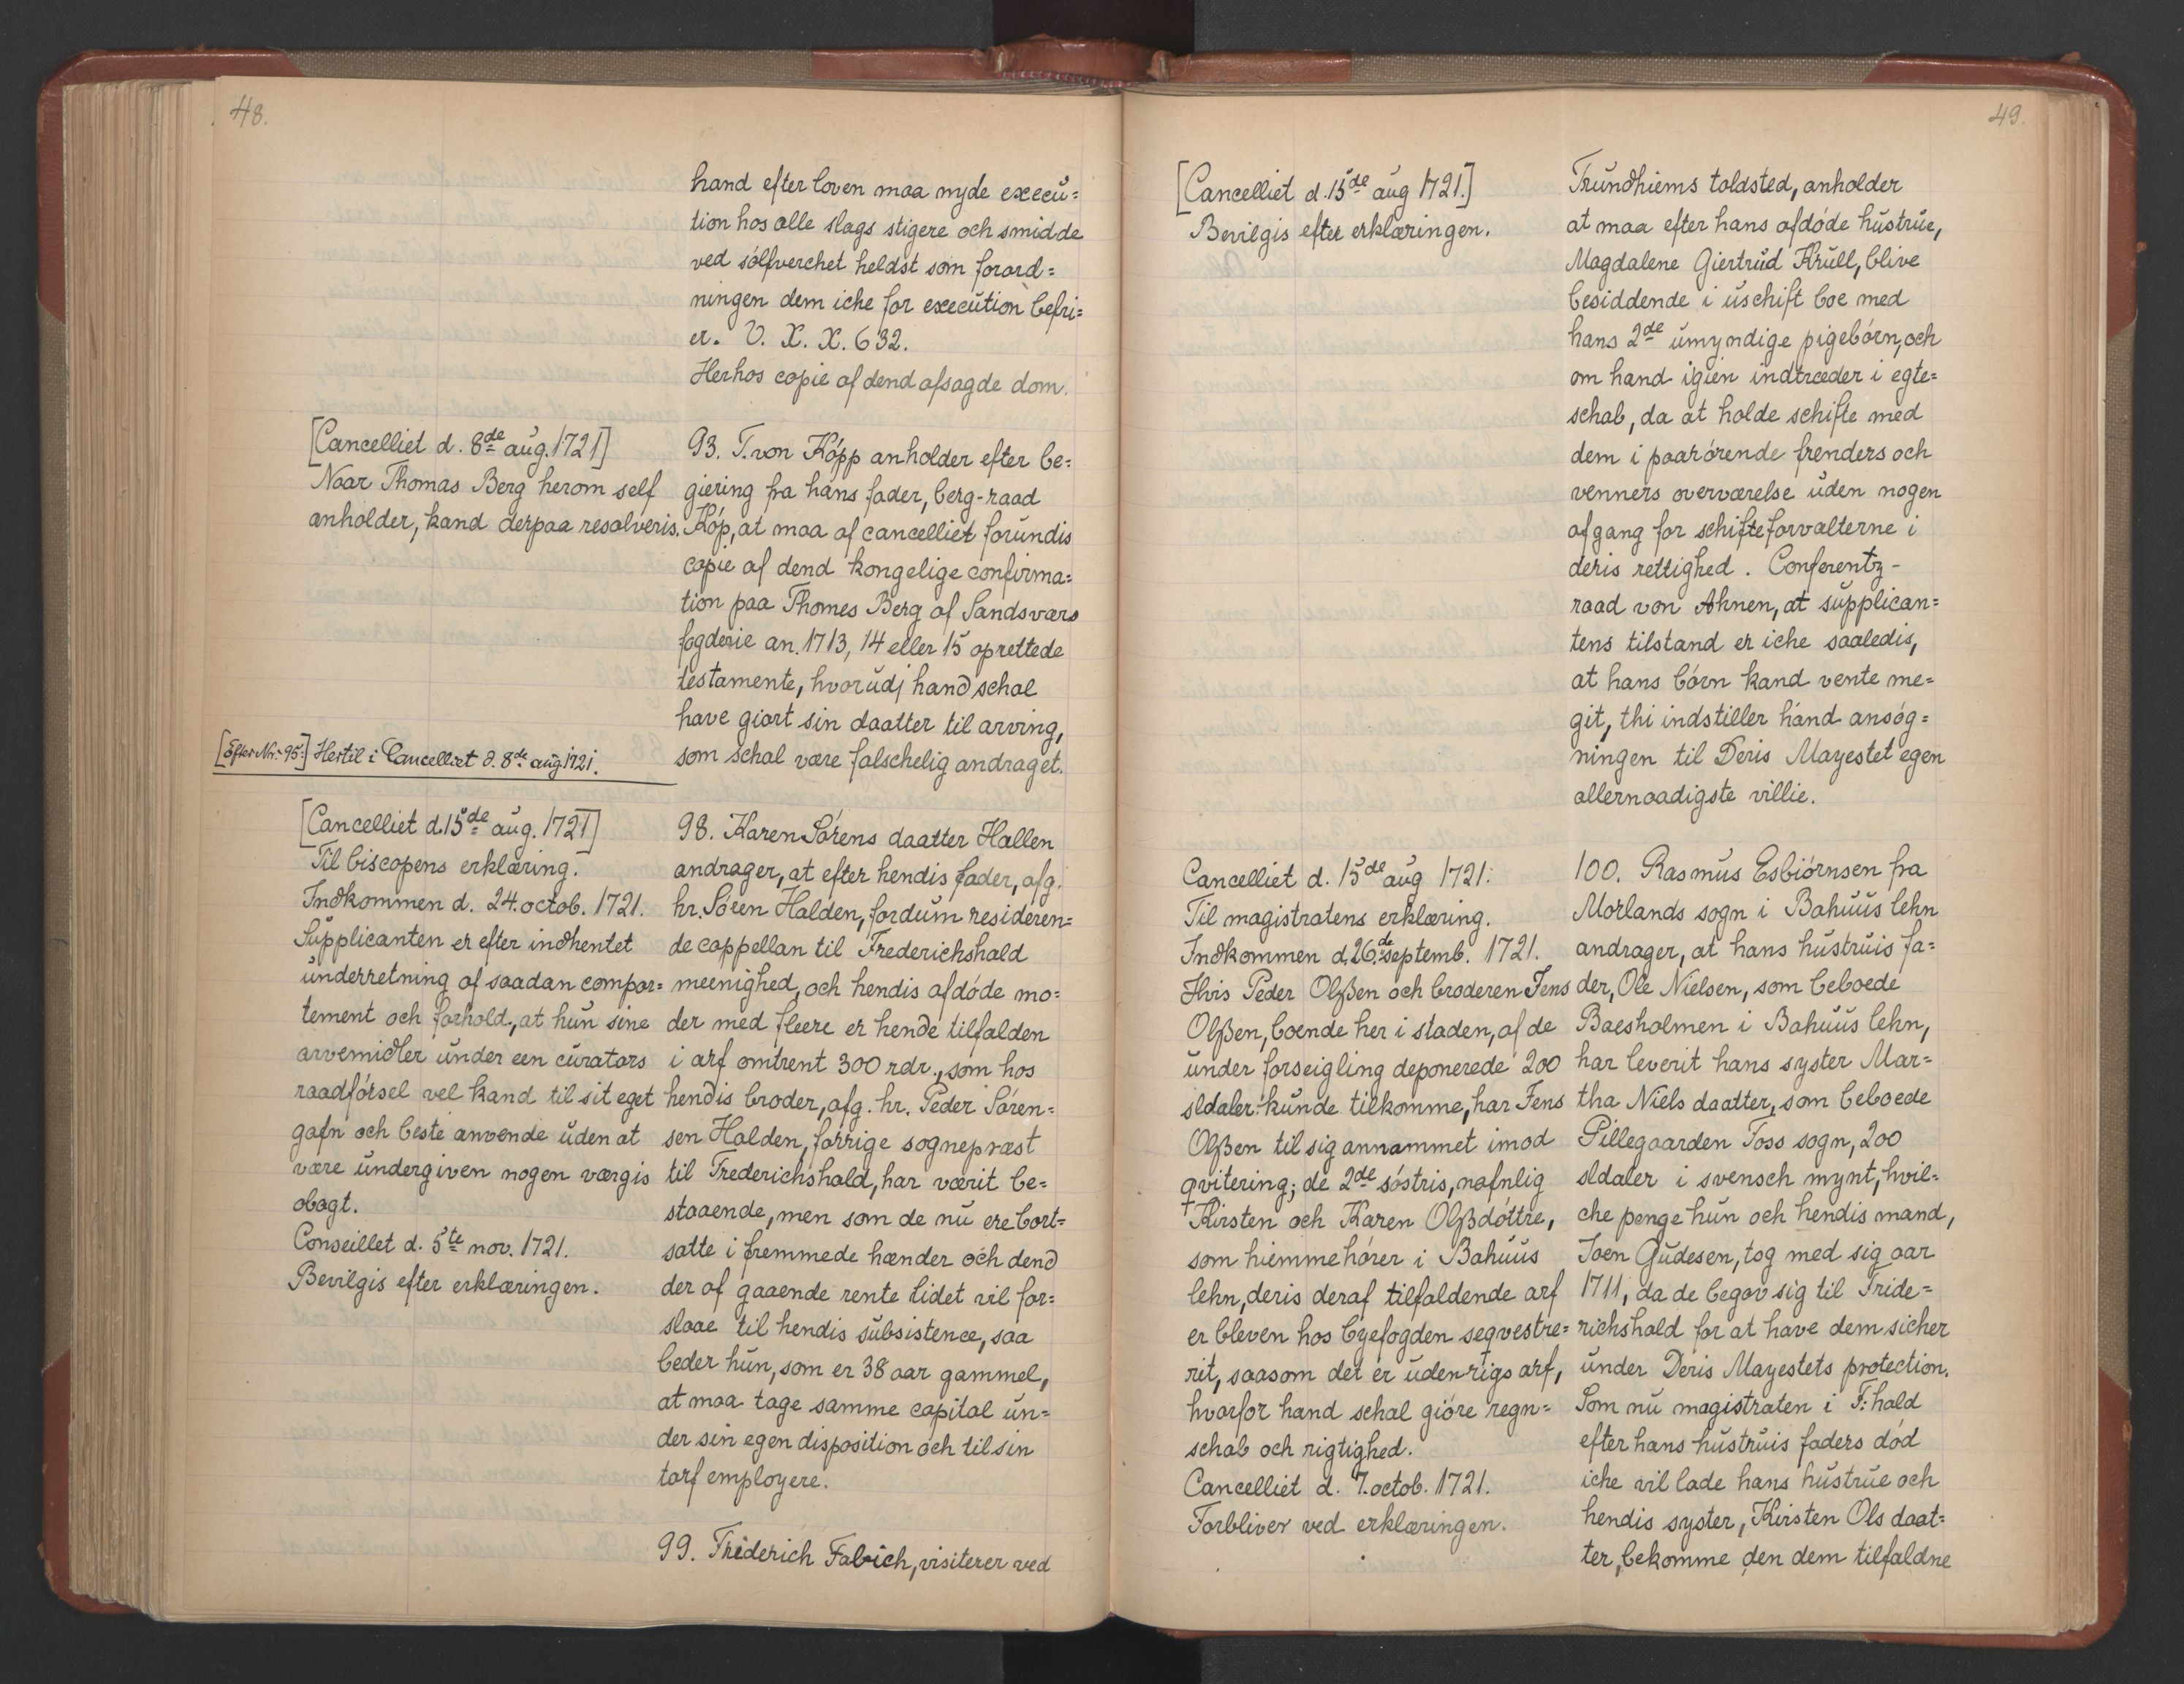 48.
hand efter loven maa nyde execu=
tion hos alle slags stigere och smidde
ved sólfverchet heldst som forord=
ningen dem iche for execution befri=
er. V. X. X. 632.
Herhos copie af dend afsagde dom.
[Cancelliet d. 8de aug. 1721]
Naar Thomas Berg herom self
anholder, kand derpaa resolveris.
93. T. von Kópp anholder efter be=
giering fra hans fader, berg-raad
Kóp, at maa af cancelliet forundis
copie af dend kongelige confirma=
tion paa Thomes Berg af Sandsværs
fogderie an. 1713, 14 eller 15 oprettede
testamente, hvorudj hand schal
have giort sin daatter til arving,
som schal være falschelig andraget.
[Efter Nr. 95:] Hertil i Cancelliet d. 8de aug. 1721.
[Cancelliet d. 15de aug. 1721]
Til biscopens erklæring.
Indkommen d. 24. octob. 1721.
Supplicanten er efter indhentet
underretning af saadan compor=
tement och forhold, at hun sine
arvemidler under een curators
raadfórsel vel kand til sit eget
gafn och beste anvende uden at
være undergiven nogen værgis
obagt.
Conseillet d. 5te nov. 1721.
Bevilgis efter erklæringen.
98. Karen Sórens daatter Hallen
andrager, at efter hendis fader, afg.
hr. Sóren Halden, fordum resideren=
de cappellan til Frederichshald
meenighed, och hendis afdóde mo=
der med fleere er hende tilfalden
i arf omtrent 300 rdr., som hos
hendis broder, afg. hr. Peder Sóren=
sen Halden, forrige sognepræst
til Frederichshald, har værit be=
staaende, men som de nu ere bort=
satte i fremmede hænder och dend
der af gaaende rente lidet vil for=
slaae til hendis subsistence, saa
beder hun, som er 38 aar gammel,
at maa tage samme capital un=
der sin egen disposition och til sin
tarf employere.
99. Friderich Fabrich, visiterer ved
49.
[Cancelliet d. 15de aug 1721.]
Bevilgis efter erklæringen.
Trundhiems toldsted, anholder
at maa efter hans afdóde hustrue,
Magdalene Giertrud Krull, blive
besiddende i uschift boe med
hans 2de umyndige pigebórn, och
om hand igien indtræder i egte=
schab, da at holde schifte med
dem i paarórende frenders och
venners overværelse uden nogen
afgang for schifteforvalterne i
deris rettighed. Conferentz-
raad von Ahnen, at supplican=
tens tilstand er iche saaledis,
at hans bórn kand vente me=
git, thi indstiller hand ansóg=
ningen til Deris Mayestet egen
allernaadigste villie.
Cancelliet d. 15de aug 1721.
Til magistratens erklæring.
Indkommen d. 26de septemb. 1721.
Hvis Peder Olßen och broderen Jens
Olßen, boende her i staden, af de
under forseigling deponerede 200
sldaler kunde tilkomme, har Jens
Olßen til sig annammet imod
qvitering; de 2de sóstris, nafnlig
Kirsten och Karen Olßdóttre,
som hiemmehórer i Bahuus
lehn, deris deraf tilfaldende arf
er bleven hos byefogden seqvestre=
rit, saasom det er udenrigs arf,
hvorfor hand schal gióre regn=
schab och rigtighed.
Cancelliet d. 7. octob. 1721.
Forbliver ved erklæringen.
100. Rasmus Esbiórnsen fra
Morlands sogn i Bahuus lehn
andrager, at hans hustruis fa=
der, Ole Nielsen, som beboede
Baesholmen i Bahuus lehn,
har leverit hans syster Mar=
tha Niels daatter, som beboede
Pillegaarden Toss sogn, 200
sldaler i svensch mynt, hvil=
che penge hun och hendis mand,
Joen Gudesen, tog med sig aar
1711, da de begav sig til Fride=
richshald for at have dem sicher
under Deris Mayestets protection.
Som nu magistraten i F: hald
efter hans hustruis faders dód
iche vil lade hans hustrue och
hendis syster, Kirsten Ols daat=
ter, bekomme den dem tilfaldne